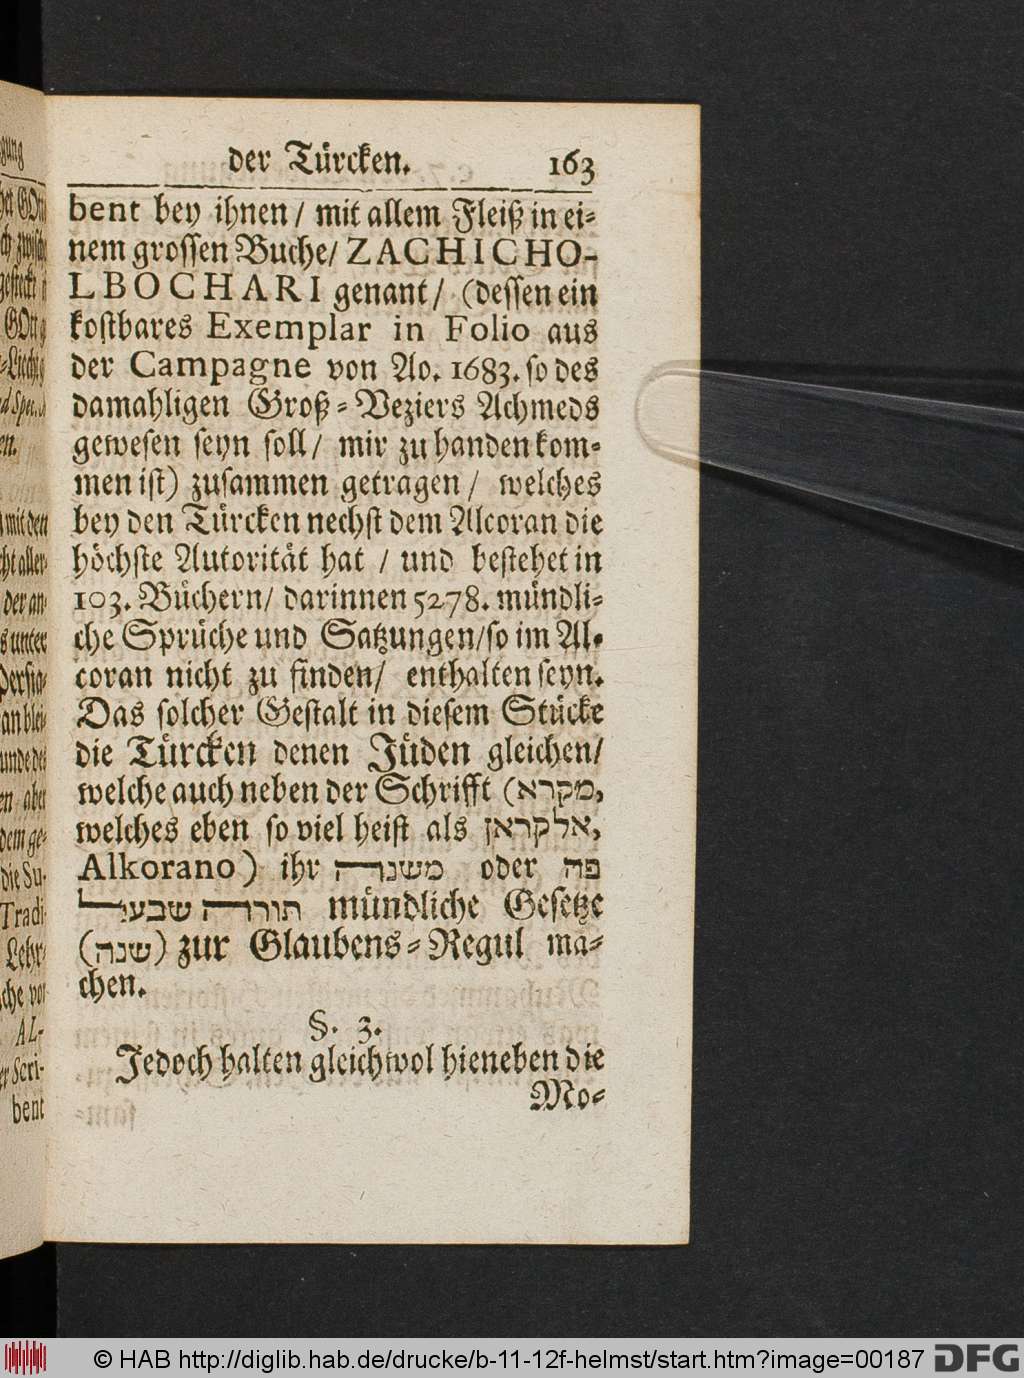 der Türcken. 163
bent bey ihnen / mit allem Fleiß in ei⸗
nem grossen Buche/ ZACHICHO-
LBOCHARI genant / (dessen ein
kostbares Exemplar in Folio aus
der Campagne von Ao. 1683. so des
damahligen Groß⸗Veziers Achmeds
gewesen seyn soll / mir zu handen kom⸗
men ist) zusammen getragen / welches
bey den Türcken nechst dem Alcoran die
höchste Autorität hat / und bestehet in
103. Büchern / darinnen 5278. mündli⸗
che Sprüche und Satzungen / so im Al⸗
coran nicht zu finden / enthalten seyn.
Das solcher Gestalt in diesem Stücke
die Türcken denen Jüden gleichen /
welche auch neben der Schrifft (מקרא,
welches eben so viel heist als אלקראן,
Alkorano) ihr משנה oder פה
תורה שבעל mündliche Gesetze
(שנה) zur Glaubens⸗Regul ma⸗
chen.
§. 3.
Jedoch halten gleichwol hieneben die
Mo⸗
gung
mit den
der an⸗
s unter
Persia⸗
an blei⸗
en aber
dem ge⸗
die Su⸗
Tradi
Lehr⸗
che vor
AL-
er Scri-
bent
© HAB http://diglib.hab.de/drucke/b-11-12f-helmst/start.htm?image=00187 DFG